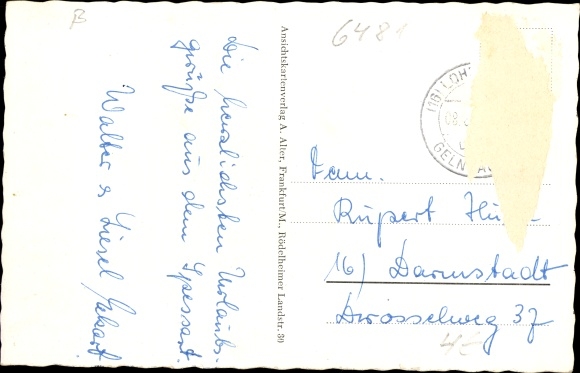 B
6481
Die herzlichsten Urlaubs-
grüße aus dem Spessart.
Walter & Liesel
Ansichtskartenverlag A. Alter, Frankfurt/M., Rödelheimer Landstr. 30
(16) LOH
08.
GELN
Fam.
Rupert
16) Darmstadt
Drosselweg 37